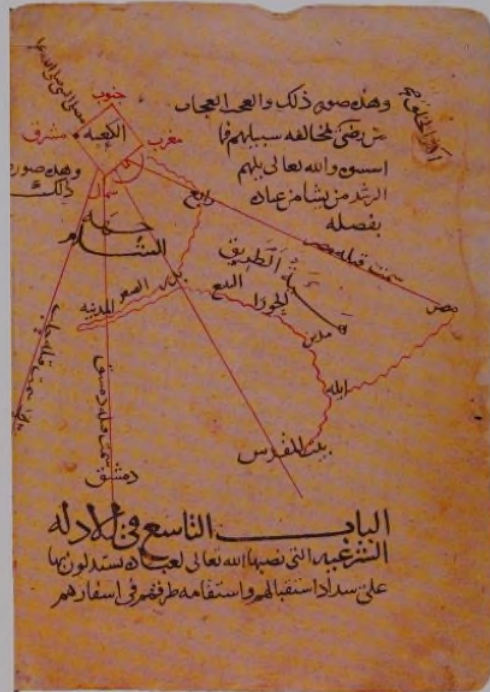 وهذه صورة ذلك والعجب العجاب
من يضى لمخالفه سبيلهم فما
اسسوه والله تعالى يلهم
الرشد من يشا من عباده
بفضله
جنوب
الكعبه
مشرق
مغرب
شمال
وهذه صورة
ذلك
جهه
الشام
رابع
سمت قبله مصر
مصر
الطريق
الينبع
الحورا
بدر
الصفر
المدينه
مدين
ايله
بيت المقدس
سمت قبله دمشق
دمشق
الباب التاسع في الادله
الشرعيه التي نصبها الله تعالى لعباده يستدلون بها
على سداد استقبالهم واستقامه طرقهم في اسفارهم